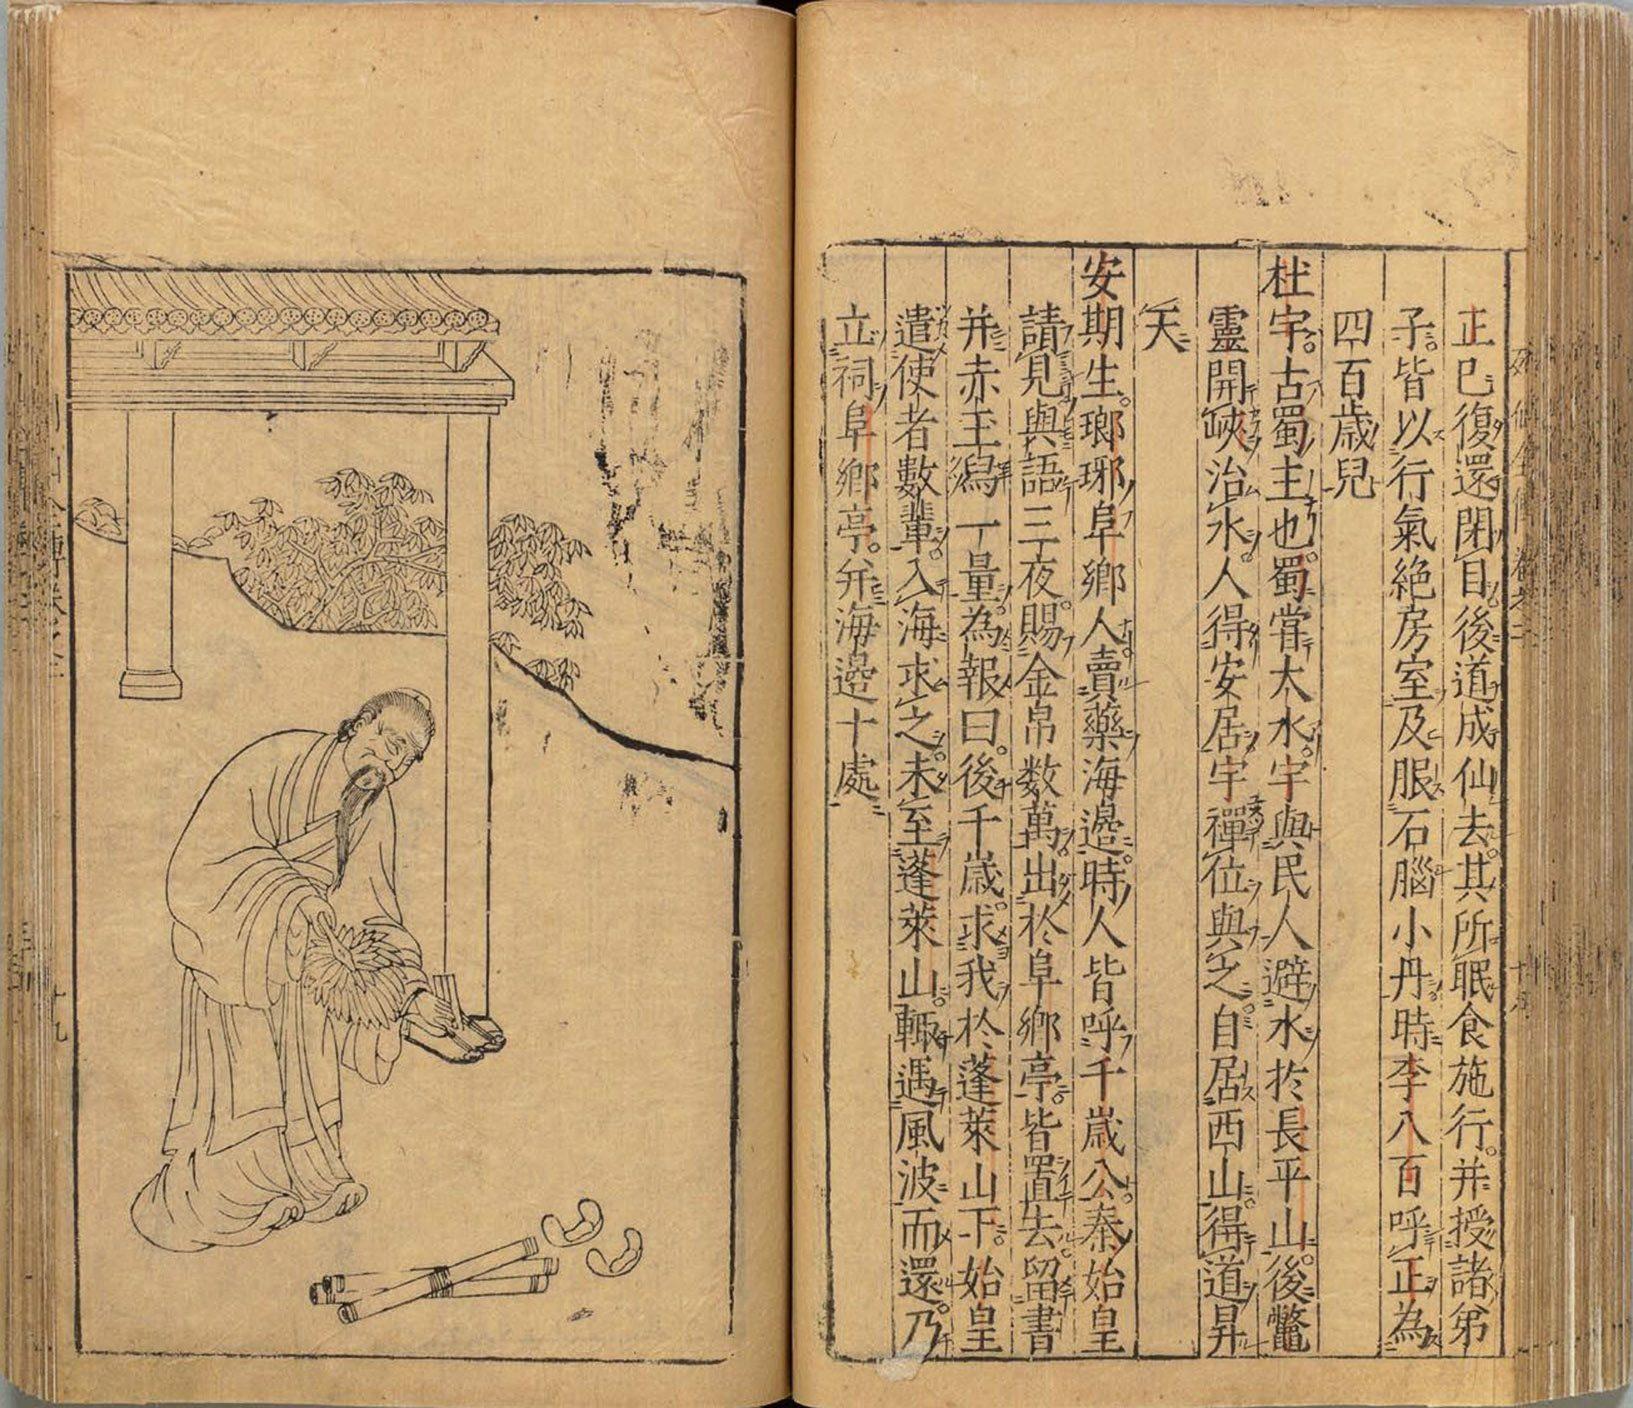 正已復還閉目後道成仙去其所眠食施行并授諸弟
子皆以行氣絶房室及服石腦小丹時李八百呼正為
四百歲兒
杜宇古蜀主也蜀嘗大水宇與民人避水於長平山後鼈
靈開峽治水人得安居宇禪位與之自居西山得道昇
天
安期生瑯琊阜鄉人賣藥海邉時人皆呼千歲公秦始皇
請見與語三夜賜金帛数萬出於阜鄉亭皆置去留書
并赤玉潟一量為報曰後千歲求我於蓬萊山下始皇
遣使者數輩入海求之未至蓬萊山輒遇風波而還乃
立祠阜鄉亭并海邉十處